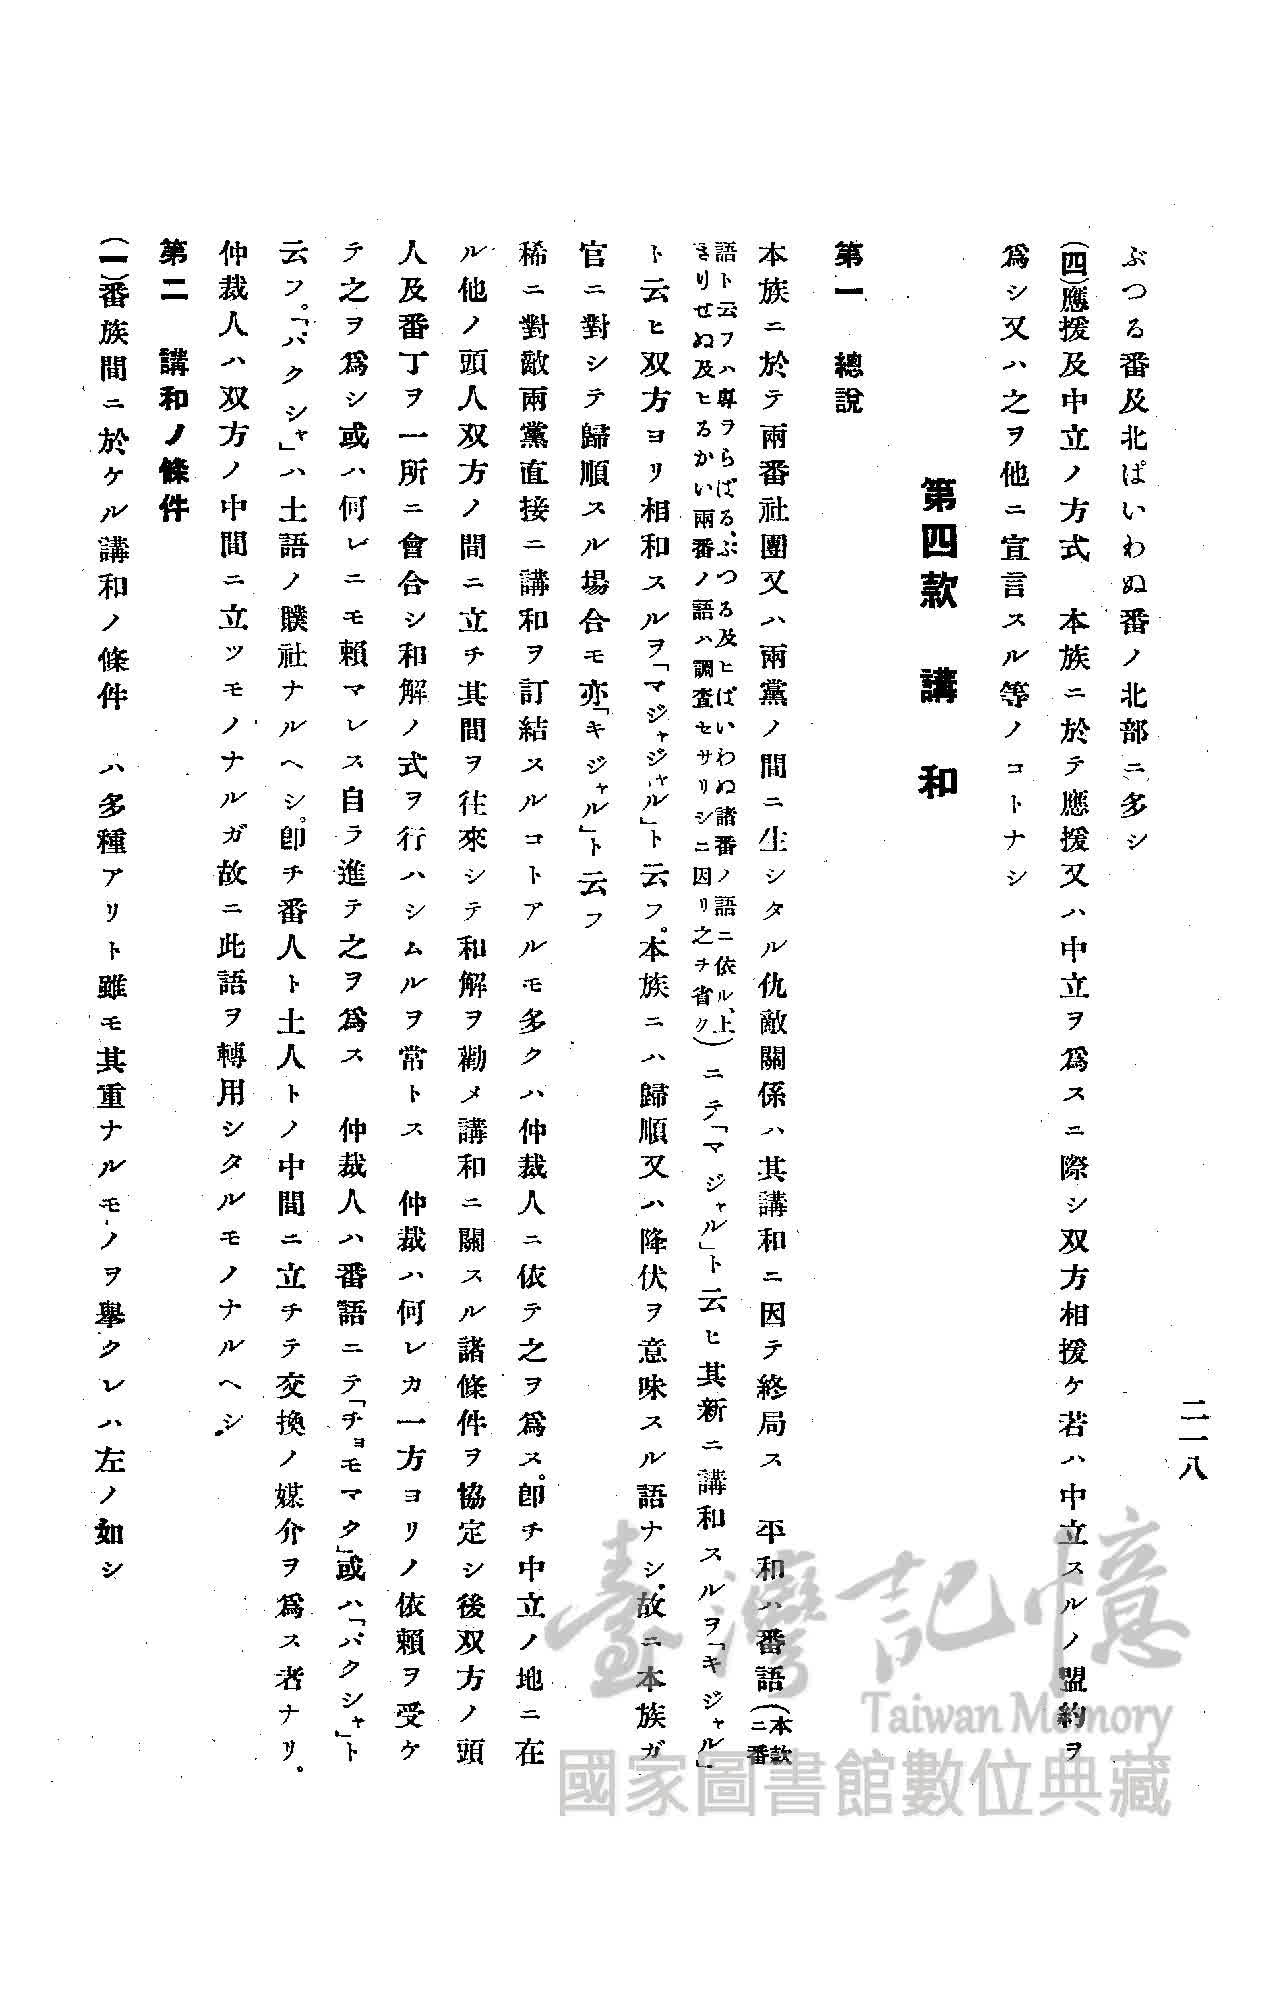 二一八
ぶつる番及北ぱいわぬ番ノ北部ニ多シ
(四)應援及中立ノ方式　本族ニ於テ應援又ハ中立ヲ爲スニ際シ双方相援ケ若ハ中立スルノ盟約ヲ
爲シ又ハ之ヲ他ニ宣言スル等ノコトナシ
第四款　講和
第一　總說
本族ニ於テ兩番社團又ハ兩黨ノ間ニ生シタル仇敵關係ハ其講和ニ因テ終局ス　平和ハ番語(本款ニ番
語ト云フハ專ヲらばる、ぶつる及ヒぱいわぬ諸番ノ語ニ依ル、上
きりせぬ及ヒるかい兩番ノ語ハ調査セサリシニ因リ之ヲ省ク)ニテ「マジャル」ト云ヒ其新ニ講和スルヲ「キジャル」
ト云ヒ双方ヨリ相和スルヲ「マジャジャル」ト云フ。本族ニハ歸順又ハ降伏ヲ意味スル語ナシ、故ニ本族ガ
官ニ對シテ歸順スル場合モ亦「キジャル」ト云フ
稀ニ對敵兩黨直接ニ講和ヲ訂結スルコトアルモ多クハ仲裁人ニ依テ之ヲ爲ス。卽チ中立ノ地ニ在
ル他ノ頭人双方ノ間ニ立チ其間ヲ往來シテ和解ヲ勸メ講和ニ關スル諸條件ヲ協定シ後双方ノ頭
人及番丁ヲ一所ニ會合シ和解ノ式ヲ行ハシムルヲ常トス　仲裁ハ何レカ一方ヨリノ依賴ヲ受ケ
テ之ヲ爲シ或ハ何レニモ賴マレス自ラ進テ之ヲ爲ス　仲裁人ハ番語ニテ「チョモマク」或ハ「バクシャ」ト
云フ。「バクシャ」ハ土語ノ贌社ナルヘシ。卽チ番人ト土人トノ中間ニ立チテ交換ノ媒介ヲ爲ス者ナリ。
仲裁人ハ双方ノ中間ニ立ツモノナルガ故ニ此語ヲ轉用シタルモノナルヘシ
第二　講和ノ條件
(一)番族間ニ於ケル講和ノ條件　ハ多種アリト雖モ其重ナルモノヲ擧クレハ左ノ如シ
臺灣記憶
Taiwan Memory
國家圖書館數位典藏